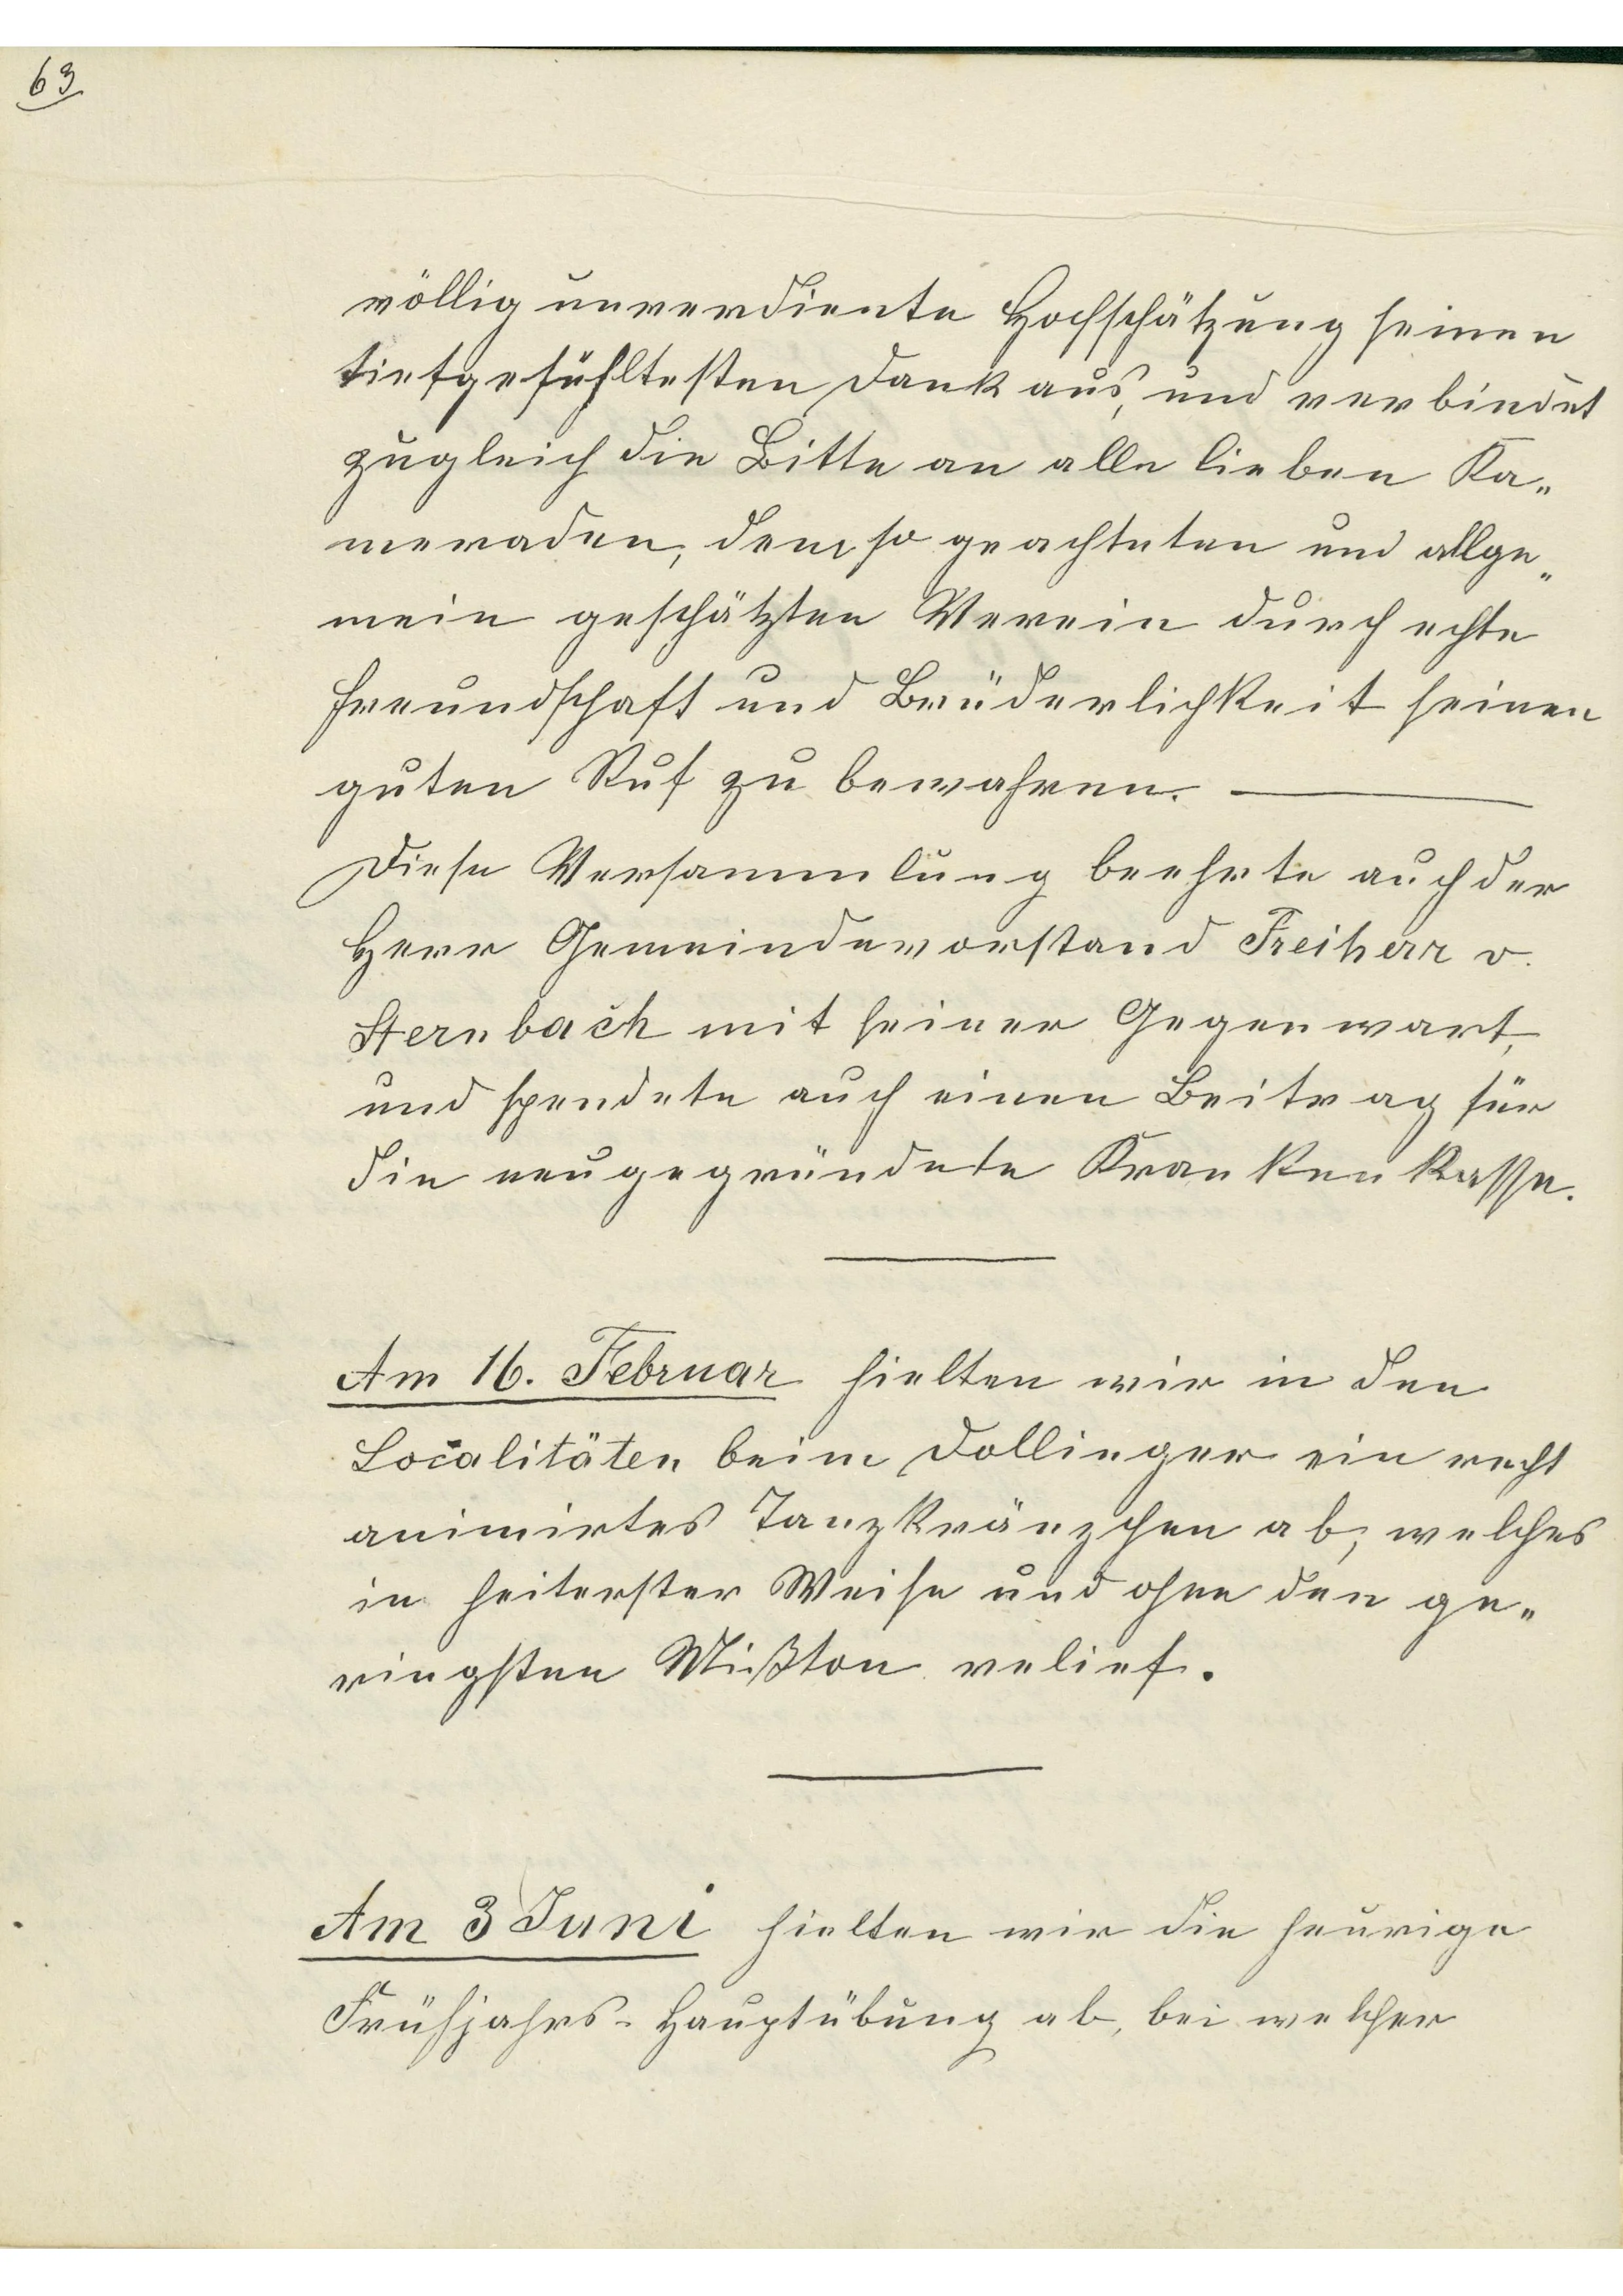 63
völlig unverdiente Hochschätzung seinen
tiefgefühltesten Dank aus, und verbindet
zugleich die Bitte an alle lieben Ka„
meraden, dem so geachteten und allge„
mein geschätzten Verein durch echte
Freundschaft und Brüderlichkeit seinen
guten Ruf zu bewahren. —
Diese Versammlung beehrte auch der
Herr Gemeindevorstand Freiherr v.
Sternbach mit seiner Gegenwart,
und spendete auch einen Beitrag für
die neugegründete Krankenkasse.
Am 16. Februar hielten wir in den
Localitäten beim Dollinger ein recht
animirtes Tanzkränzchen ab, welches
in heiterster Weise und ohne den ge„
ringsten Mißton velief.
Am 3 Juni hielten wir die heurige
Frühjahrs-Hauptübung ab, bei welcher